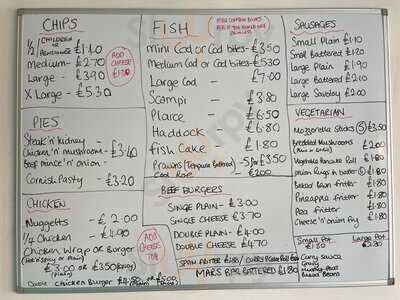 CHIPS
1/2 (CHILDRENS OR PENSIONERS) £1.40
Medium - £2.70
Large - £3.90
X Large - £5.30
ADD CHEESE £1.20
PIES
Steak 'n' kidney -
Chicken 'n' mushroom - £3.40
Beef mince 'n' onion -
Cornish Pasty - £3.20
CHICKEN
Nuggetts - £2.00
1/4 Chicken - £4.90
Chicken Wrap OR Burger
£3.00 or £3.50
ADD CHEESE 70p
Chicken Burger
FISH
Mini Cod or Cod bites - £3.50
Medium Cod or Cod bites - £5.30
Large Cod - £7.00
Scampi - £3.80
Plaice £6.50
Haddock £6.80
fish Cake - £1.80
Prawns (Tempura Battered) - 5 for £3.50
Cod Roe - £2.00
BEEF BURGERS
SINGLE PLAIN - £3.00
SINGLE CHEESE £3.70
DOUBLE PLAIN - £4.00
DOUBLE CHEESE £4.70
SPAM FRITTER £1.80
MARS BAR BATTERED £1.80
SAUSAGES
Small Plain £1.10
Small Battered £1.20
Large Plain £1.90
Large Battered £2.10
Large Saveloy £2.00
VEGETARIAN
Mozzerella Sticks (5) £3.50
Breaded Mushrooms £2.00
Vegetable Pancake Roll £1.80
Onion Rings in batter £1.80
Baked Bean fritter £1.80
Pineapple fritter £1.80
Pea fritter £1.80
Cheese 'n' onion fry £1.80
Small Pot £1.50
Large Pot
Curry Sauce
Gravy
Mushy Peas
Baked Beans